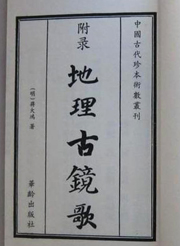 中國古代珍本術數叢刊
附录
地理古鏡歌
〔明〕蔣大鴻 著
華齡出版社